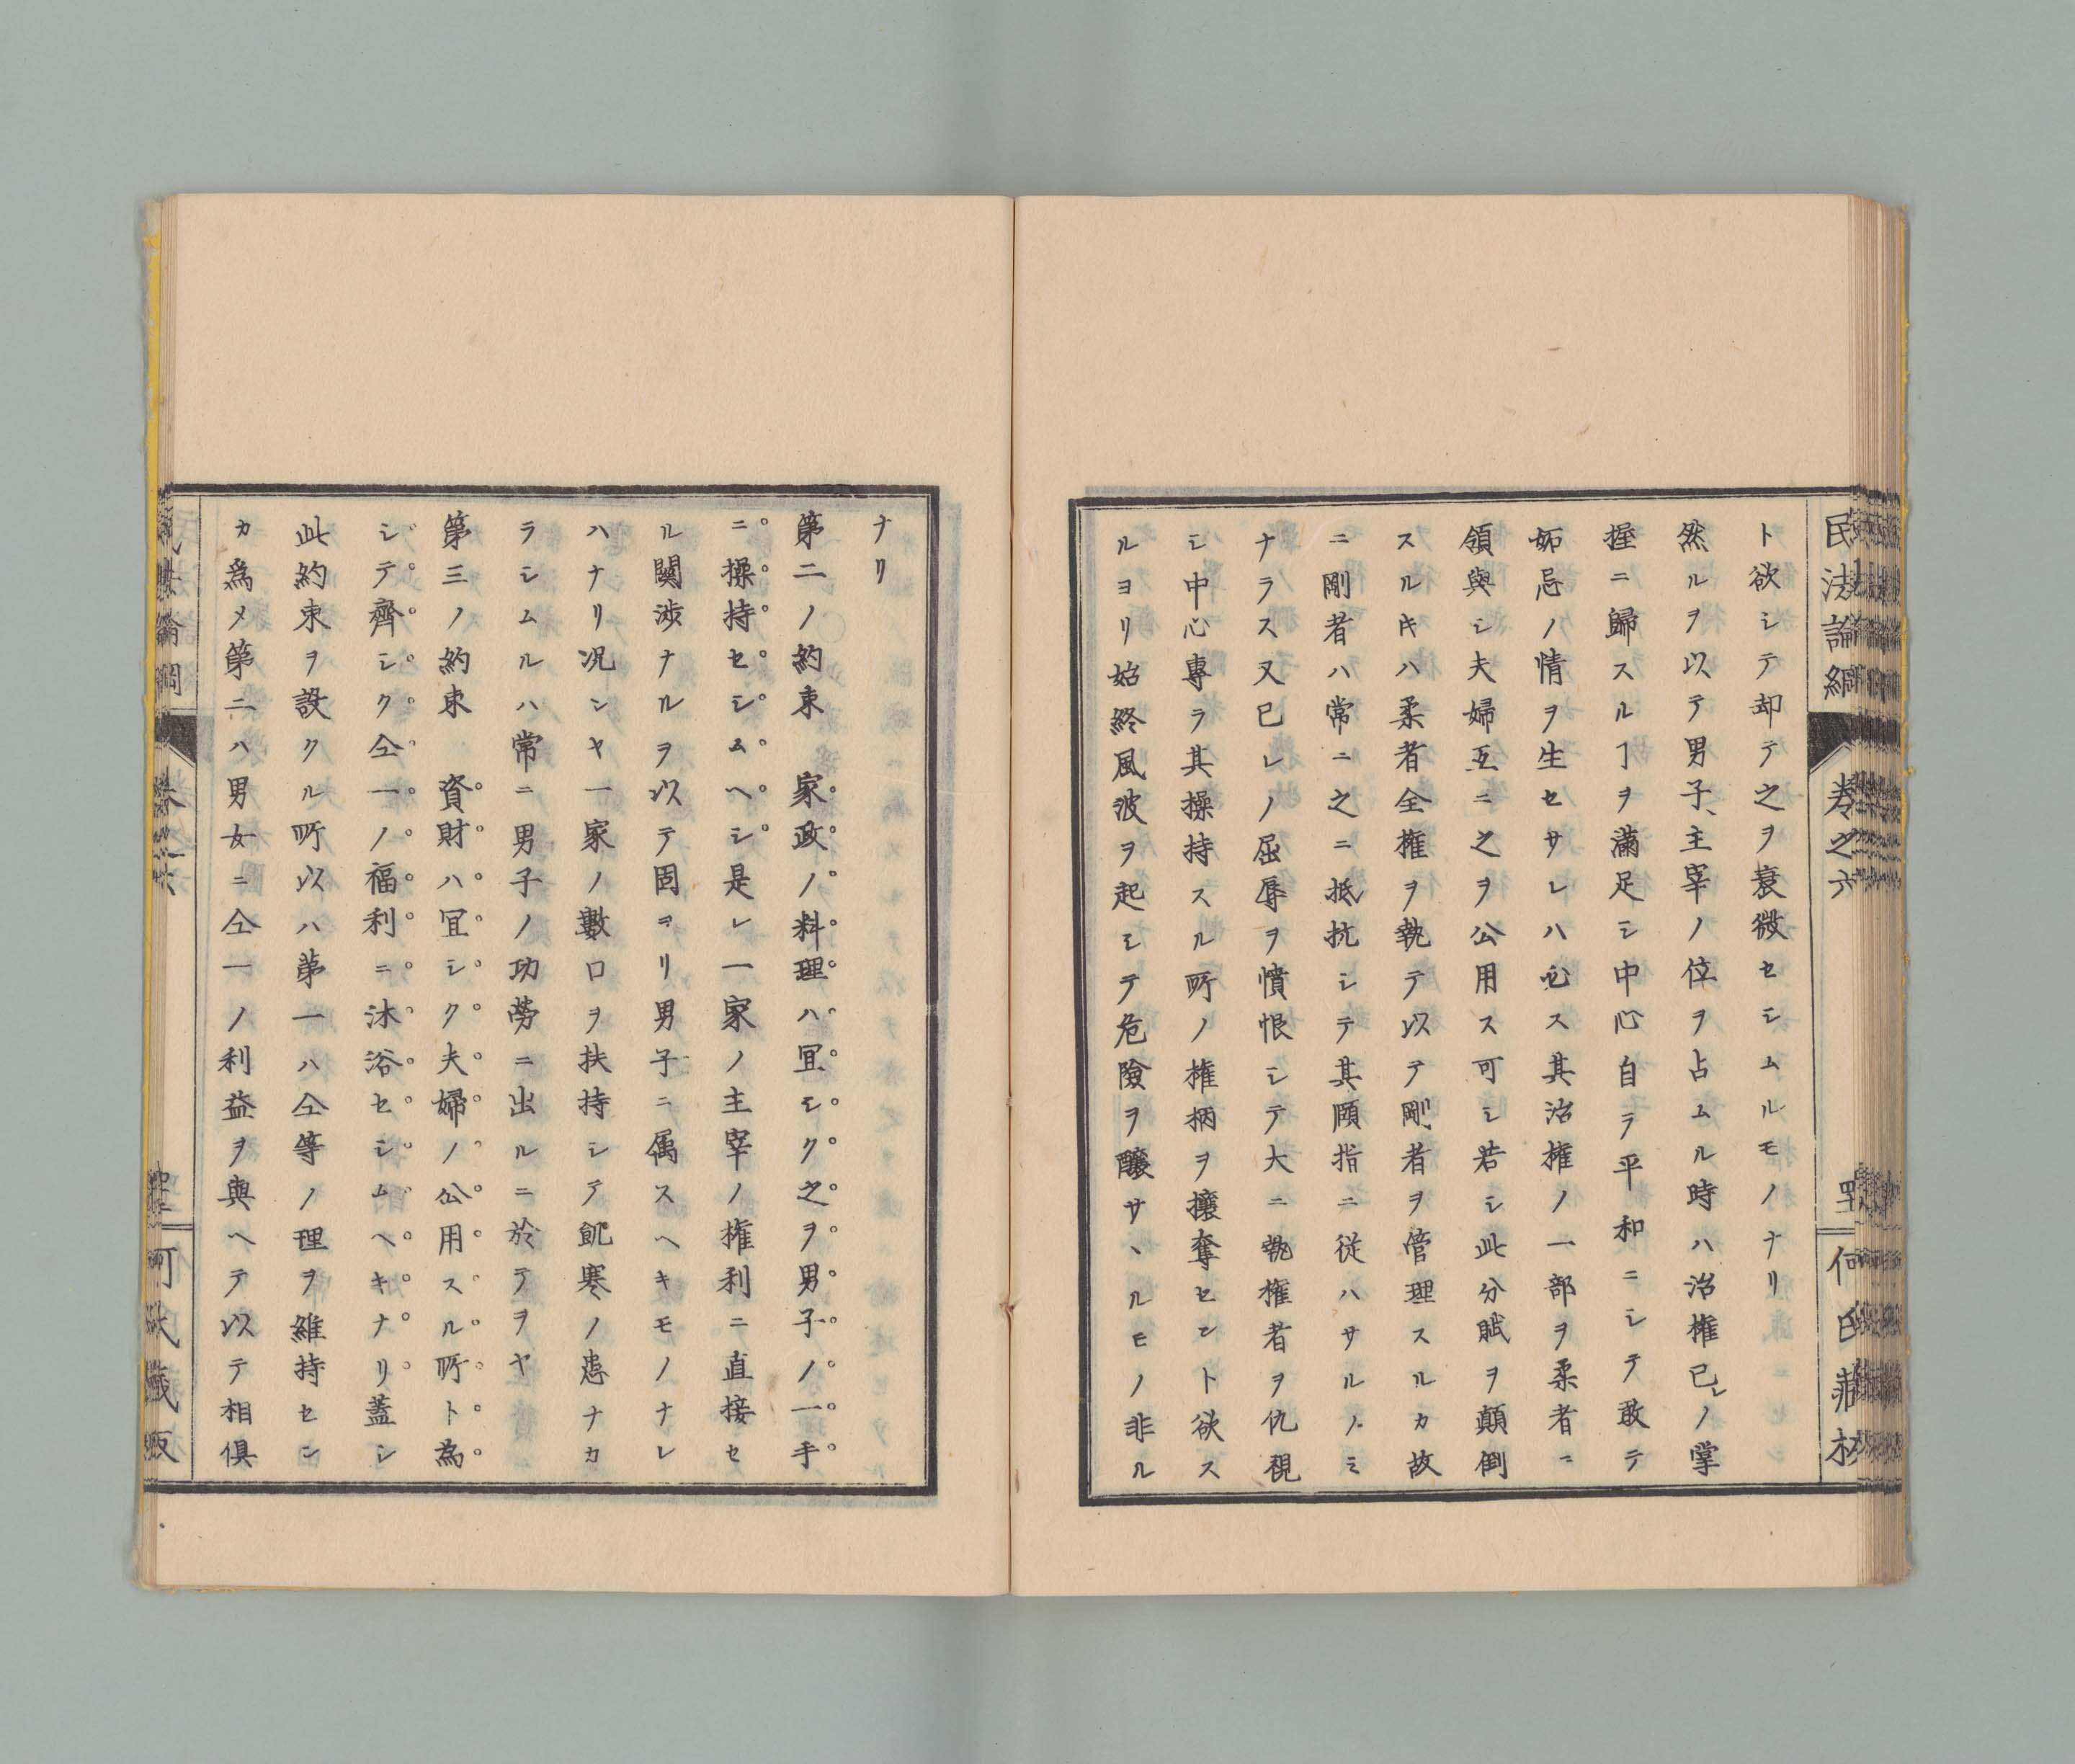 民法論綱 卷之六
ト欲シテ却テ之ヲ衰微セシムルモノナリ
然ルヲ以テ男子、主宰ノ位ヲ占ムル時ハ治権已レノ掌
握ニ歸スルヿヲ滿足シ中心自ラ平和ニシテ敢テ
妬忌ノ情ヲ生セサレハ必ス其治権ノ一部ヲ柔者ニ
領與シ夫婦互ニ之ヲ公用ス可シ若シ此分賦ヲ顛倒
スルキハ柔者全権ヲ執テ以テ剛者ヲ管理スルカ故
ニ剛者ハ常ニ之ニ抵抗シテ其頤指ニ従ハサルノミ
ナラス又已レノ屈辱ヲ憤恨シテ大ニ執権者ヲ仇視
シ中心專ラ其操持スル所ノ権柄ヲ攘奪セント欲ス
ルヨリ始終風波ヲ起シテ危險ヲ釀サヽルモノ非ル
ナリ
第二ノ約束 家政ノ料理ハ宜シク之ヲ男子ノ一手
ニ操持セシムヘシ是レ一家ノ主宰ノ権利ニ直接セ
ル關渉ナルヲ以テ固ヨリ男子ニ属スヘキモノナレ
ハナリ况ンヤ一家ノ數口ヲ扶持シテ飢寒ノ患ナカ
ラシムルハ常ニ男子ノ功勞ニ出ルニ於テヲヤ
第三ノ約束 資財ハ宜シク夫婦ノ公用スル所ト為
シテ齊シク仝一ノ福利ニ沐浴セシムヘキナリ蓋シ
此約束ヲ設クル所以ハ第一ハ仝等ノ理ヲ維持セン
カ為メ第二ハ男女ニ仝一ノ利益ヲ與ヘテ以テ相俱